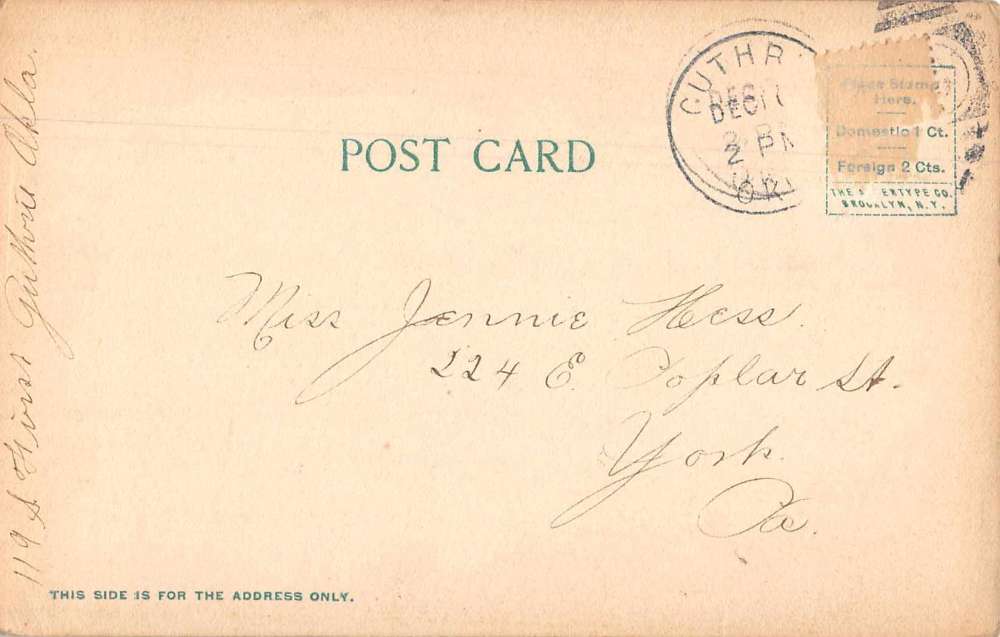 119 S. First Guthrie Okla.
POST CARD
GUTHR
DEC 17
2 PM
OK
Place Stamp
Here.
Domestic 1 Ct.
Foreign 2 Cts.
THE ERTYPE CO.
BROOKLYN, N.Y.
Miss Jennie Hess.
224 E. Poplar St.
York
Pa.
THIS SIDE IS FOR THE ADDRESS ONLY.